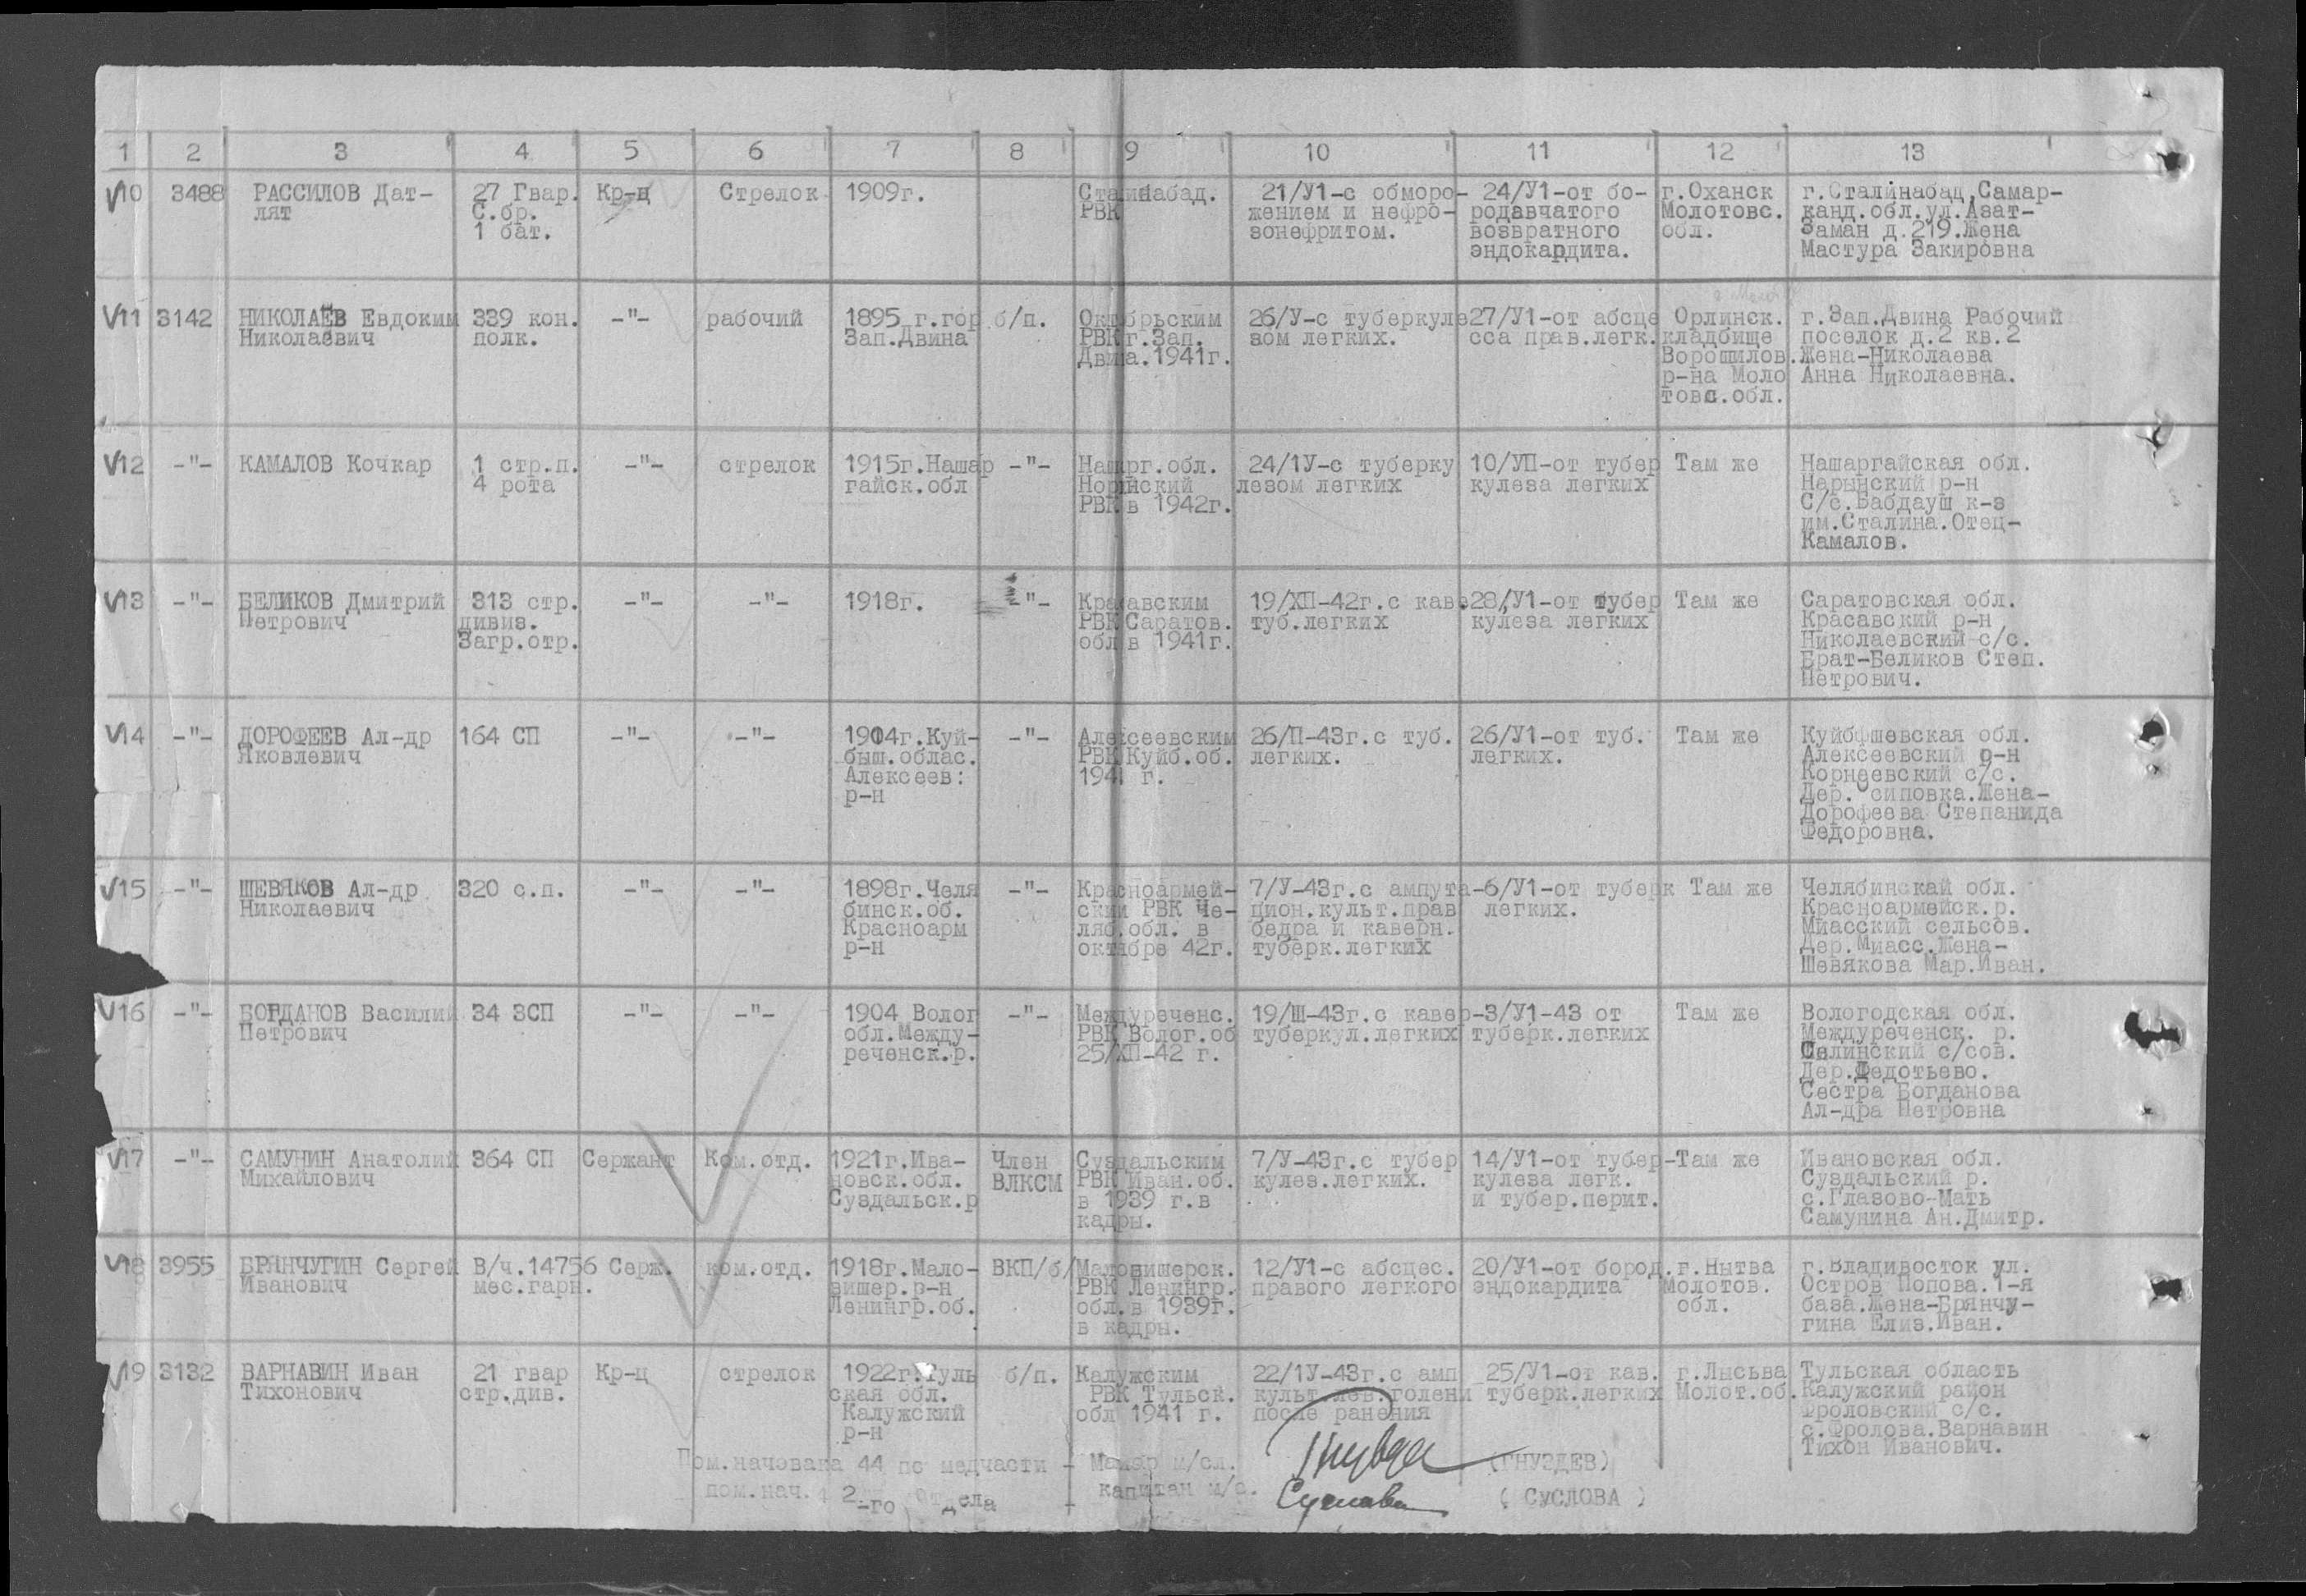 1 2 3 4 5 6 7 8 9 10 11 12 13
10 3488 РАССИЛОВ Дат- 27 Гвар. Кр-ц Стрелок 1909г. Сталинабад. 21/У1-с обморо- 24/У1-от бо- г.Оханск г.Сталинабад,Самар-
лят С.бр. РВК жением и нефро- родавчатого Молотовс. канд.обл.ул.Азат-
1 бат. зонефритом. возвратного обл. Заман д.219.Жена
эндокардита. Мастура Закировна
11 3142 НИКОЛАЕВ Евдоким 339 кон. -"- рабочий 1895 г.гор б/п. Октябрьским 26/У-с туберкуле 27/У1-от абсце Орлинск. г.Зап.Двина Рабочий
Николаевич полк. Зап.Двина РВК г.Зап. зом легких. сса прав.легк. кладбище поселок д.2 кв.2
Двина.1941г. Ворошилов. Жена-Николаева
р-на Моло Анна Николаевна.
товс.обл.
12 -"- КАМАЛОВ Кочкар 1 стр.п. -"- стрелок 1915г.Нашар -"- Нашрг.обл. 24/1У-с туберку 10/УП-от тубер Там же Нашаргайская обл.
4 рота гайск.обл Норинский лезом легких кулеза легких Нарынский р-н
РВК в 1942г. С/с.Бабдауш к-з
им.Сталина.Отец-
Камалов.
13 -"- БЕЛИКОВ Дмитрий 313 стр. -"- -"- 1918г. -"- Красавским 19/ХП-42г.с каве 28/У1-от тубер Там же Саратовская обл.
Петрович дивиз. РВК Саратов. туб.легких кулеза легких Красавский р-н
Загр.отр. обл в 1941г. Николаевский с/с.
Брат-Беликов Степ.
Петрович.
14 -"- ДОРОФЕЕВ Ал-др 164 СП -"- -"- 1904г.Куй- -"- Алексеевским 26/П-43г.с туб. 26/У1-от туб. Там же Куйбфшевская обл.
Яковлевич быш.облас. РВК Куйб.об. легких. легких. Алексеевский р-н
Алексеев: 1941 г. Корнеевский с/с.
р-н Дер. Осиповка.Жена-
Дорофеева Степанида
Федоровна.
15 -"- ШЕВЯКОВ Ал-др 320 с.п. -"- -"- 1898г.Челя -"- Красноармей- 7/У-43г.с ампута- 6/У1-от туберк Там же Челябинскай обл.
Николаевич бинск.об. ским РВК Че- цион.культ.прав легких. Красноармейск.р.
Красноарм ляб.обл. в бедра и каверн. Миасский сельсов.
р-н октябре 42г. туберк.легких Дер.Миасс.Жена-
Шевякова Мар.Иван.
16 -"- БОГДАНОВ Василий 34 ЗСП -"- -"- 1904 Волог -"- Междуреченс. 19/Ш-43г.с кавер- 3/У1-43 от Там же Вологодская обл.
Петрович обл.Между- РВК Волог.об туберкул.легких туберк.легких Междуреченск. р.
реченск.р. 25/ХП-42 г. Селинский с/сов.
Дер.Федотьево.
Сестра Богданова
Ал-дра Петровна
17 -"- САМУНИН Анатолий 364 СП Сержант Ком.отд. 1921г.Ива- Член Суздальским 7/У-43г.с тубер 14/У1-от тубер- Там же Ивановская обл.
Михайлович новск.обл. ВЛКСМ РВК Иван.об. кулез.легких. кулеза легк. Суздальский р.
Суздальск.р в 1939 г.в и тубер.перит. с.Глазово-Мать
кадры. Самунина Ан.Дмитр.
18 3955 БРЯНЧУГИН Сергей В/ч.14756 Серж. ком.отд. 1918г.Мало- ВКП/б/ Маловишерск. 12/У1-с абсцес. 20/У1-от бород. г.Нытва г.Владивосток ул.
Иванович мес.гарн. вишер.р-н РВК Ленингр. правого легкого эндокардита Молотов. Остров Попова.1-я
Ленингр.об. обл.в 1939г. обл. база.Жена-Брянчу-
в кадры. гина Елиз.Иван.
19 3132 ВАРНАВИН Иван 21 гвар Кр-ц стрелок 1922г.Туль б/п. Калужским 22/1У-43г.с амп 25/У1-от кав. г.Лысьва Тульская область
Тихонович стр.див. ская обл. РВК Тульск. культ.лев.голени туберк.легких Молот.об. Калужский район
Калужский обл 1941 г. после ранения Фроловский с/с.
р-н с.Фролова.Варнавин
Тихон Иванович.
Пом.начэвака 44 по медчасти - Майор м/сл. (ГНУЗДЕВ)
пом.нач. 2-го Отдела - капитан м/с. Суслова ( СУСЛОВА )